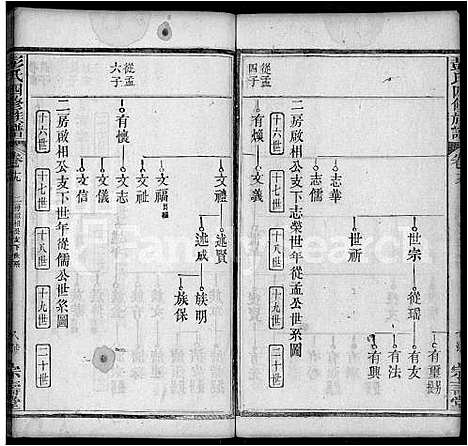 彭氏四修族譜
卷之九
從孟
四子
有煥
文義
志儒
志華
世祈
世宗
從瑶
有興
有法
有友
有璽
二房啟相公支下志榮世年從孟公世系圖
十六世
十七世
十八世
十九世
二十世
從孟
六子
有懷
文信
文儀
文志
文祉
文禧
文禮
述成
述賢
族保
族明
二房啟相公支下世年從儒公世系圖
十六世
十七世
十八世
十九世
二十世
彭氏四修族譜
卷之九
二房啟相公支下世系